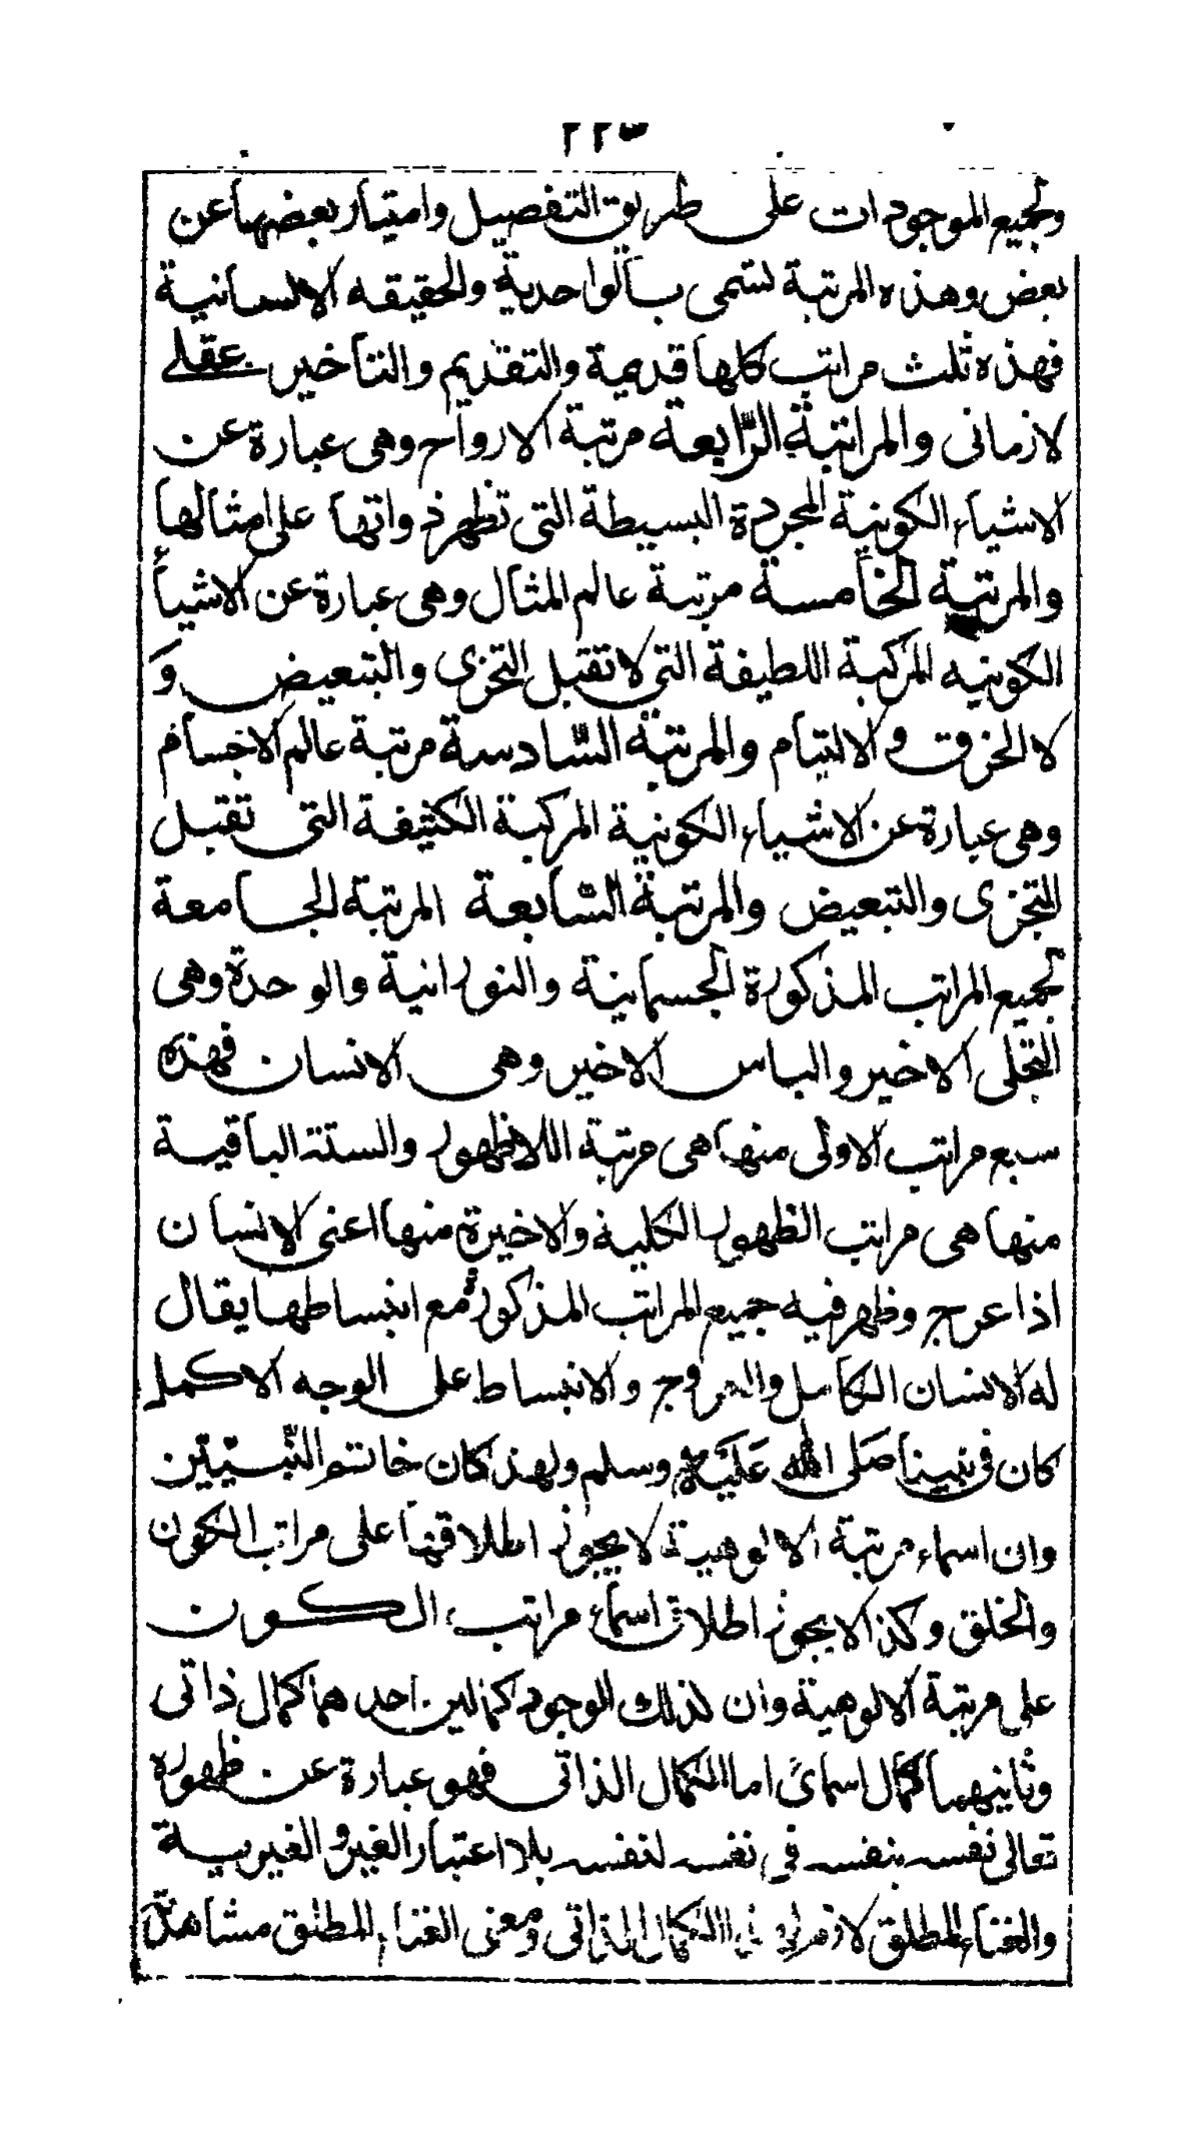 ٢٢٣
ولجميع الموجودات على طريق التفصيل وامتياز بعضها عن
بعض وهذه المرتبة تسمى بالواحدية والحقيقه الانسانية
فهذه ثلث مراتب كلها قديمة والتقديم والتاخير عقلى
لا زمانى والمراتبة الرّابعة مرتبة الارواح وهى عبارة عن
الاشياء الكونية المجردة البسيطة التى تظهر ذواتها على امثالها
والمرتبة الخامسة مرتبة عالم المثال وهى عبارة عن الاشيأ
الكونيه المركبة اللطيفة التى لا تقبل التجزى والتبعيض وَ
لا الخرق والالتيام والمرتبة السّادسة مرتبة عالم الاجسام
وهى عبارة عن الاشياء الكونية المركبة الكثيفة التى تقبل
التجزى والتبعيض والمرتبة السّابعة المرتبة الجامعة
لجميع المراتب المذكورة الجسمانية والنورانية والوحدة وهى
التجلى الاخير والباس الاخير وهى الانسان فهذه
سبع مراتب الاولى منها هى مرتبة اللاظهور والستة الباقية
منها هى مراتب الظهور الكلية والاخيرة منها اعنى الانسان
اذا عرج وظهر فيه جميع المراتب المذكورة مع انبساطها يقال
له الانسان الكامل والعروج والانبساط على الوجه الاكمل
كان فى نبينا صَلى الله عَليَه وسلم ولهذ كان خاتم النّبيّين
وان اسماء مرتبة الالوهية لا يجوز اطلاقها على مراتب الكون
والخلق وكذا لا يجوز اطلاق اسماء مراتب الكون
على مرتبة الالوهية وان لذلك الوجود كمالين احدهما كمال ذاتى
وثانيهما كمال اسمائ اما الكمال الذاتى فهو عبارة عن ظهوره
تعالى نفسه بنفسه فى نفسه لنفسه بلا اعتبار الغير والغيرية
والغناء المطلق لازم لهذا الكمال الذاتى ومعنى الغناء المطلق مشاهدته